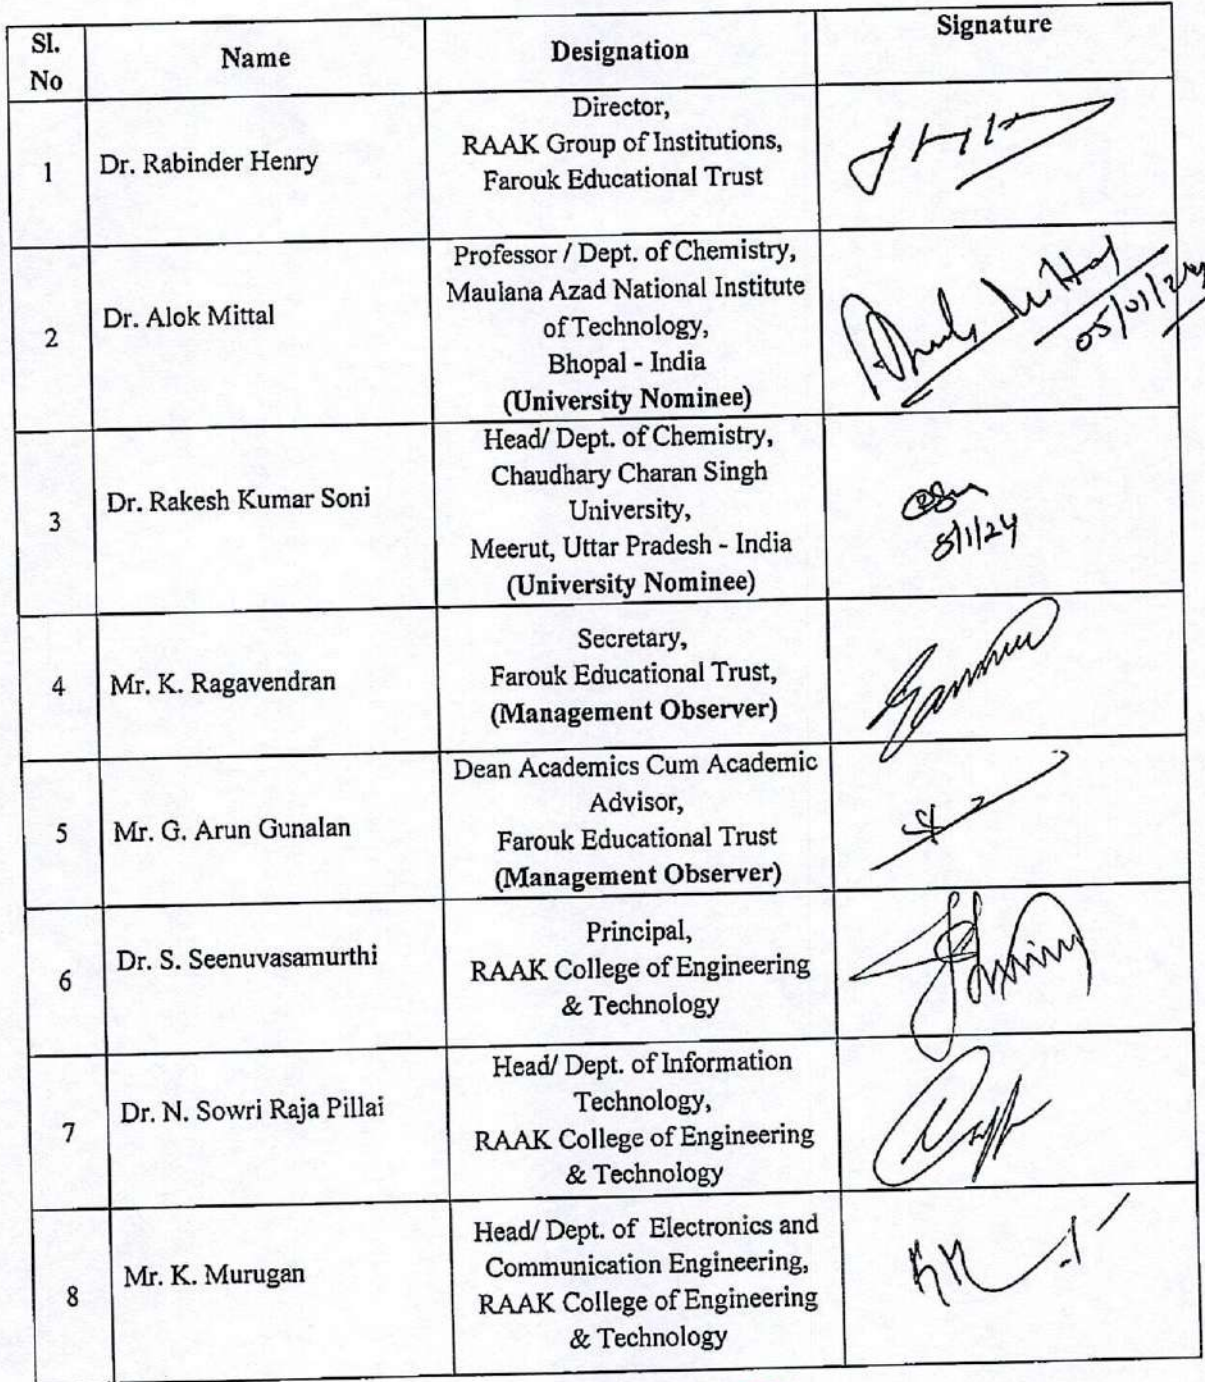 Sl.
No
Name
Designation
Signature
1
Dr. Rabinder Henry
Director,
RAAK Group of Institutions,
Farouk Educational Trust
2
Dr. Alok Mittal
Professor / Dept. of Chemistry,
Maulana Azad National Institute
of Technology,
Bhopal - India
(University Nominee)
Mittal
05/01/24
3
Dr. Rakesh Kumar Soni
Head/ Dept. of Chemistry,
Chaudhary Charan Singh
University,
Meerut, Uttar Pradesh - India
(University Nominee)
8/1/24
4
Mr. K. Ragavendran
Secretary,
Farouk Educational Trust,
(Management Observer)
5
Mr. G. Arun Gunalan
Dean Academics Cum Academic
Advisor,
Farouk Educational Trust
(Management Observer)
6
Dr. S. Seenuvasamurthi
Principal,
RAAK College of Engineering
& Technology
7
Dr. N. Sowri Raja Pillai
Head/ Dept. of Information
Technology,
RAAK College of Engineering
& Technology
8
Mr. K. Murugan
Head/ Dept. of Electronics and
Communication Engineering,
RAAK College of Engineering
& Technology